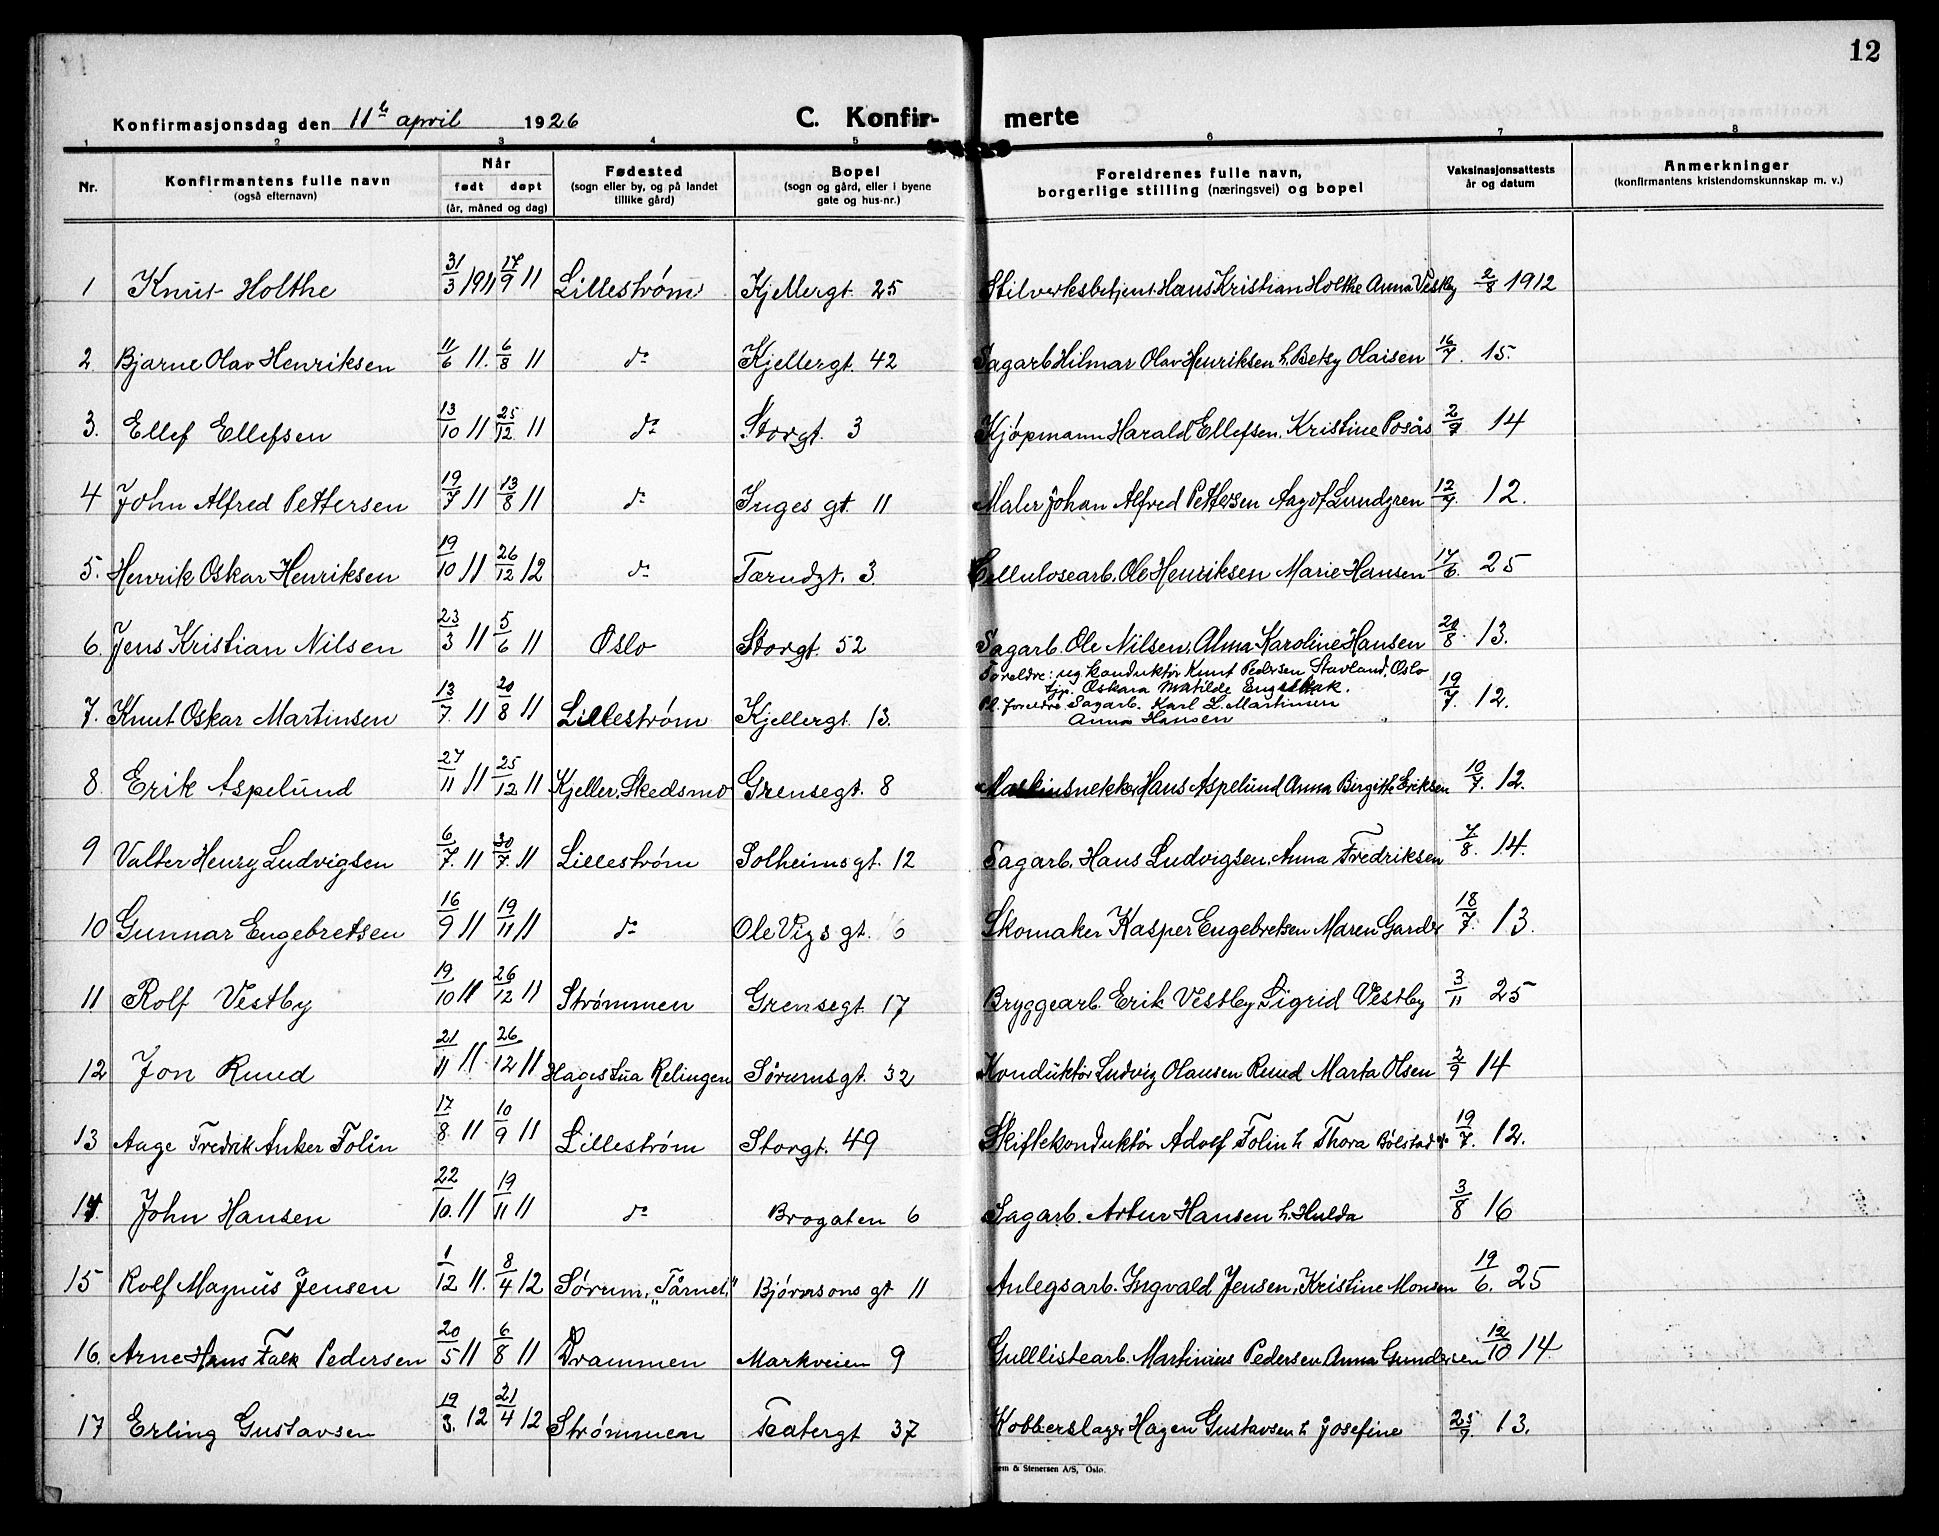 12
Konfirmasjonsdag den 11te april 1926 C. Konfir- merte
1 2 3 4 5 6 7 8
Nr. Konfirmantens fulle navn (også efternavn) Når født døpt (år, måned og dag) Fødested (sogn eller by, og på landet tillike gård) Bopel (sogn og gård, eller i byene gate og hus-nr.) Foreldrenes fulle navn, borgerlige stilling (næringsvei) og bopel Vaksinasjonsattests år og datum Anmerkninger (konfirmantens kristendomskunnskap m. v.)
1 Knut Holthe 31/3 1911 17/9 11 Lillestrøm Kjellergt. 25 Stilverksbetjent Hans Kristian Holthe Anna Vestby 2/8 1912
2 Bjarne Olav Henriksen 11/6 11. 6/8 11 do Kjellergt. 42 Sagarb Hilmar Olav Henriksen h. Betsy Olaisen 16/7. 15.
3. Ellef Ellefsen 13/10 11 25/12 11 do Storgt. 3 Kjøpmann Harald Ellefsen, Kristine Posås 2/9 14
4 John Alfred Pettersen 19/7 11 13/8 11 do Inges gt. 11 Maler Johan Alfred Pettersen Aagot Lundgren 12/7. 12.
5. Henrik Oskar Henriksen 19/10 11 26/12 12 do Tærudgt. 3. Cellulosearb. Ole Henriksen Marie Hansen 17/6. 25
6. Jens Kristian Nilsen 23/3 11 5/6 11 Oslo Storgt. 52 Sagarb. Ole Nilsen, Alma Karoline Hansen 20/8. 13.
7. Knut Oskar Martinsen 13/7. 11 20/8 11 Lillestrøm Kjellergt. 13. Foreldre: ug konduktør Knut Pedersen Stavland, Oslo
tjp. Oskara Matilde Engebak.
Pl. foreldre Sagarb. Karl L. Martinsen
Anna Hansen 19/7. 12.
8. Erik Aspelund 27/11 11 25/12 11 Kjeller, Skedsmo Grensegt. 8 Maskinsnekker Hans Aspelund Anna Birgitte Eriksen 10/7. 12.
9 Valter Henry Ludvigsen 6/7. 11 30/7. 11 Lillestrøm Solheimsgt. 12 Sagarb. Hans Ludvigsen, Anna Fredriksen 7/8. 14.
10 Gunnar Engebretsen 16/9 11 19/11 11 do Ole Vigs gt. 6 Skomaker Kasper Engebretsen Maren Garder 18/7. 13.
11 Rolf Vestby 19/10 11 26/12 11 Strømmen Grensegt. 17 Bryggearb. Erik Vestby, Sigrid Vestby 3/11 25
12 Jon Ruud 21/11 11. 26/12 11 Hagestua Relingen Sørumsgt. 32 Konduktør Ludvig Olausen Ruud Marta Olsen 2/9 14
13 Aage Fredrik Anker Folin 17/8. 11 10/9 11 Lillestrøm Storgt. 49 Skiftekonduktør Adolf Folin h Thora Bølstad 19/7. 12.
14. John Hansen 22/10. 11 19/11 11 do Brogaten 6 Sagarb. Artur Hansen h. Hulda 3/8 16
15 Rolf Magnus Jensen 1/12 11. 8/4 12 Sørum, „Tårnet" Bjørnsons gt 11 Anlegsarb. Ingvald Jensen, Kristine Monsen 19/6. 25
16. Arne Hans Falk Pedersen 20/5 11 6/8 11 Drammen Markveien 9 Gulllistearb. Martinius Pedersen Anna Gundersen 12/10 14.
17 Erling Gustavsen 19/3. 12 21/4 12 Strømmen Teatergt 37 Kobberslager Hagen Gustavsen h Josefine 25/9. 13.
em & Stenersen A/S, Oslo.